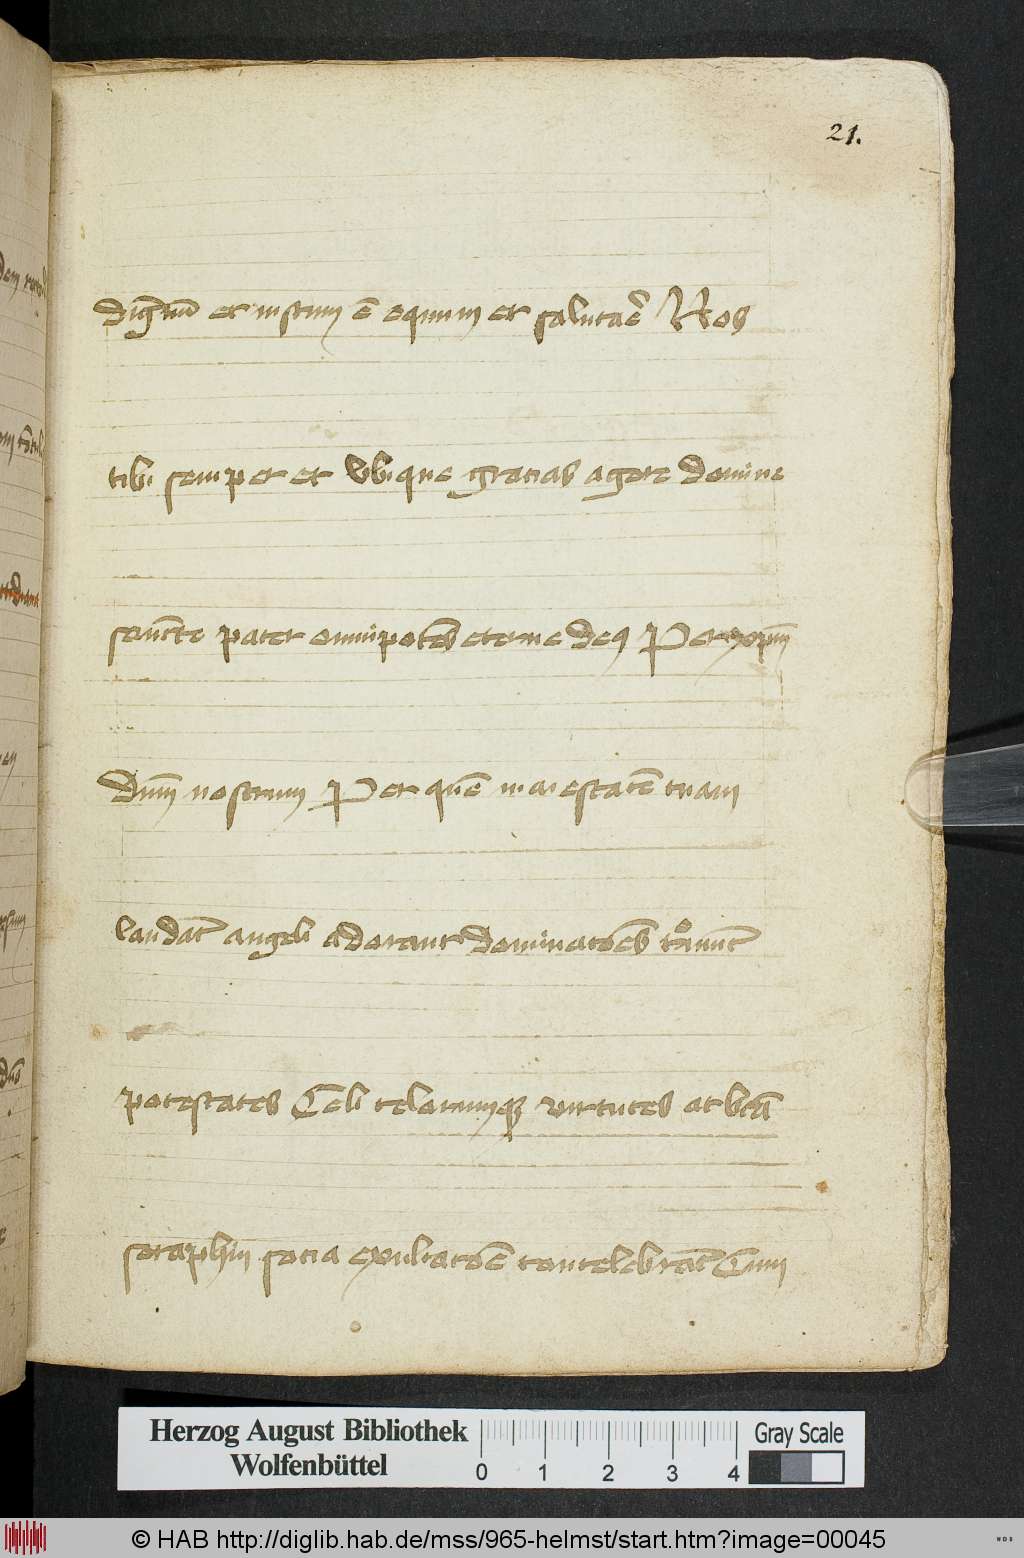 21.
dignũ et iustum ē equum et salutaẽ Nos
tibi semper et vbique gracias agere domine
sancte pater omnipotẽs eterne deꝰ Per xpm̃
dnm̃ nostrum Per quẽ maiestatẽ tuam
laudãt angeli adorant dominatõẽs
potestates Celi celorumqꝫ virtutes ac btã
seraphin socia exultatõẽ concelebrãt Cum
Herzog August Bibliothek
Wolfenbüttel
0 1 2 3 4
Gray Scale
© HAB http://diglib.hab.de/mss/965-helmst/start.htm?image=00045